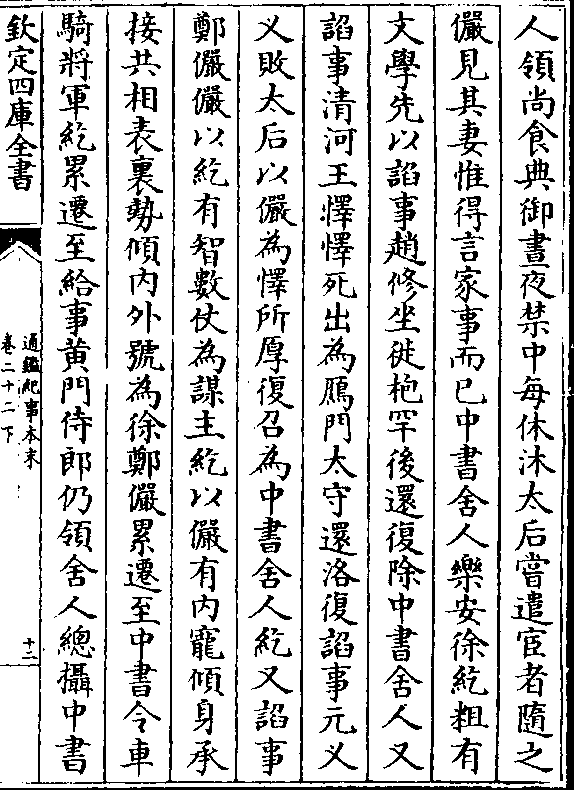 人領尚食典御晝夜禁中每休沐太后嘗遣宦者隨之
儼見其妻惟得言家事而已中書舍人樂安徐紇粗有
文學先以諂事趙修坐徙枹罕後還復除中書舍人又
諂事清河王懌懌死出為鴈門太守還洛復諂事元义
义敗太后以儼為懌所厚復召為中書舍人紇又諂事
鄭儼儼以紇有智數仗為謀主紇以儼有内寵傾身承
接共相表裏勢傾内外號為徐鄭儼累遷至中書令車
騎將軍紇累遷至給事黄門侍郎仍領舍人總攝中書
欽定四庫全書
通鑑紀事本末
卷二十二下
十二